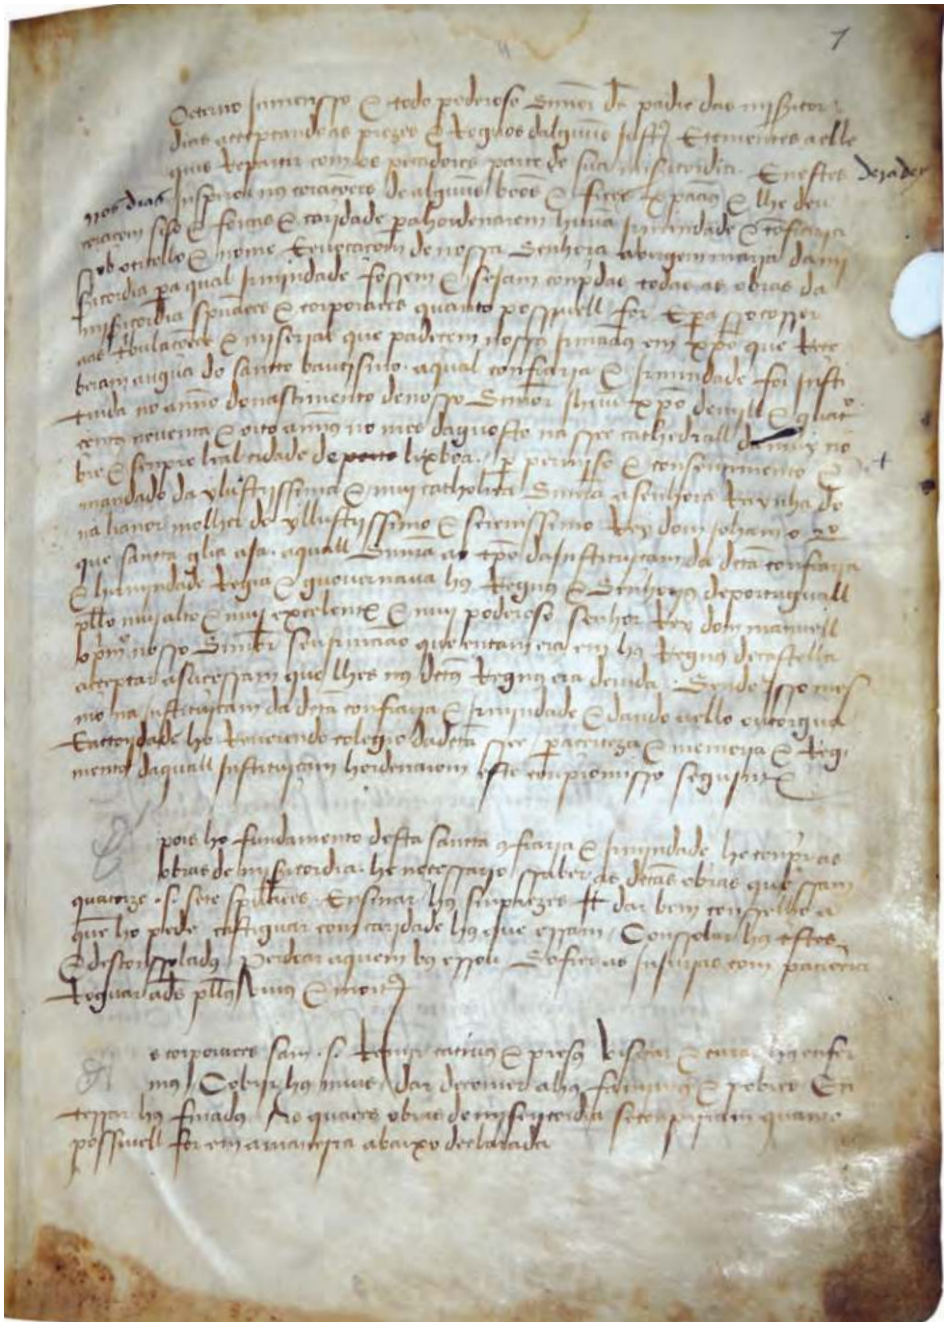 1
Oeterno Jnmensso & todo poderoso Sñnor ds padre das misericor
dias aceptando as prezes & Roguos dalguũs justos & tementes a elle
quis Repartir com os pecadores parte de sua misericordia. E nestes deradeyros
nos dias Jnspirou nos corações de alguũs boõs & fiees xpaãos & lhe deu
coracam siso & forcas & caridade pa hordenarem huũa jrmindade & cõfraria
sob otitollo & nome & envocaçom de nossa Senhora a virgem maria da mi
sericordia pa qual jrmindade fossem & sejam conpridas todas as obras da
misericordia sprituaees & corporaees quanto possiuell for & pa socorrer
aas tribulacoões & miserjas que padecem nossos jrmaãos em xpõ que Rece
beram augua do sancto bautismo. aqual confraria & Jrmindade foi jnsti
tuida no anno do nascimento de nosso Sñnor jhũu xpõ de mill & quatro
centos noventa & oito annos no mes daguosto na see cathedrall da muy no
bre & sempre lial cidade de lixboa. per permisso & consentimento &
mandado da yllustrissima & mui catholica Sñnora a senhora Raynha do
na lianor molher do yllustrissimo & serenissimo Rey dom joham o 2º
que sancta gloria aja. aquall Sñnora ao tpõ da jnstituiçam da dcta confraria
& hirmindade Regia & guouernava hos Regnos & Senhorios de portuguall
pllo mui alto & mui excelente & mui poderoso senhor Rey dom manuell
o prº nosso Sñnor seu jrmaão que entam era em hos Regnos de castella
acceptar a sucessam que lhes nos dctos Regnos era deuida. Sendo jsso mes
mo na jnstituiçam da dcta confraria & jrmindade & dando a ello outorgua
& actoridade ho Reverendo colegio da dcta see. pa certeza & memoria & Regi
mento daquall jnstituiçam hordenarom este conpromisso seguinte
pois ho fundamento desta sancta cõfraria & jrmindade he conprir as
obras de misericordia. he necessario ssaber as dctas obras que ssam
quatorze .s. sete sprituaees. Ensinar hos sinprezes Jt dar bom consselho a
que ho pede. castiguar com caridade hos que erram, Conssolar hos tristes
& desconssolados, Perdoar aquem hos errou. Sofrer as jnjurias com paciencia
Roguar a ds pllos viuos & mortos
s corporaees sam .s. Remjr catiuos & presos visitar & curar hos enfer
mos, Cobrir hos nuus, dar decomer a hos famintos & pobres En
terrar hos finados. As quaees obras de misericordia se conpriram quanto
possiuell for em a maneira abaixo declarada